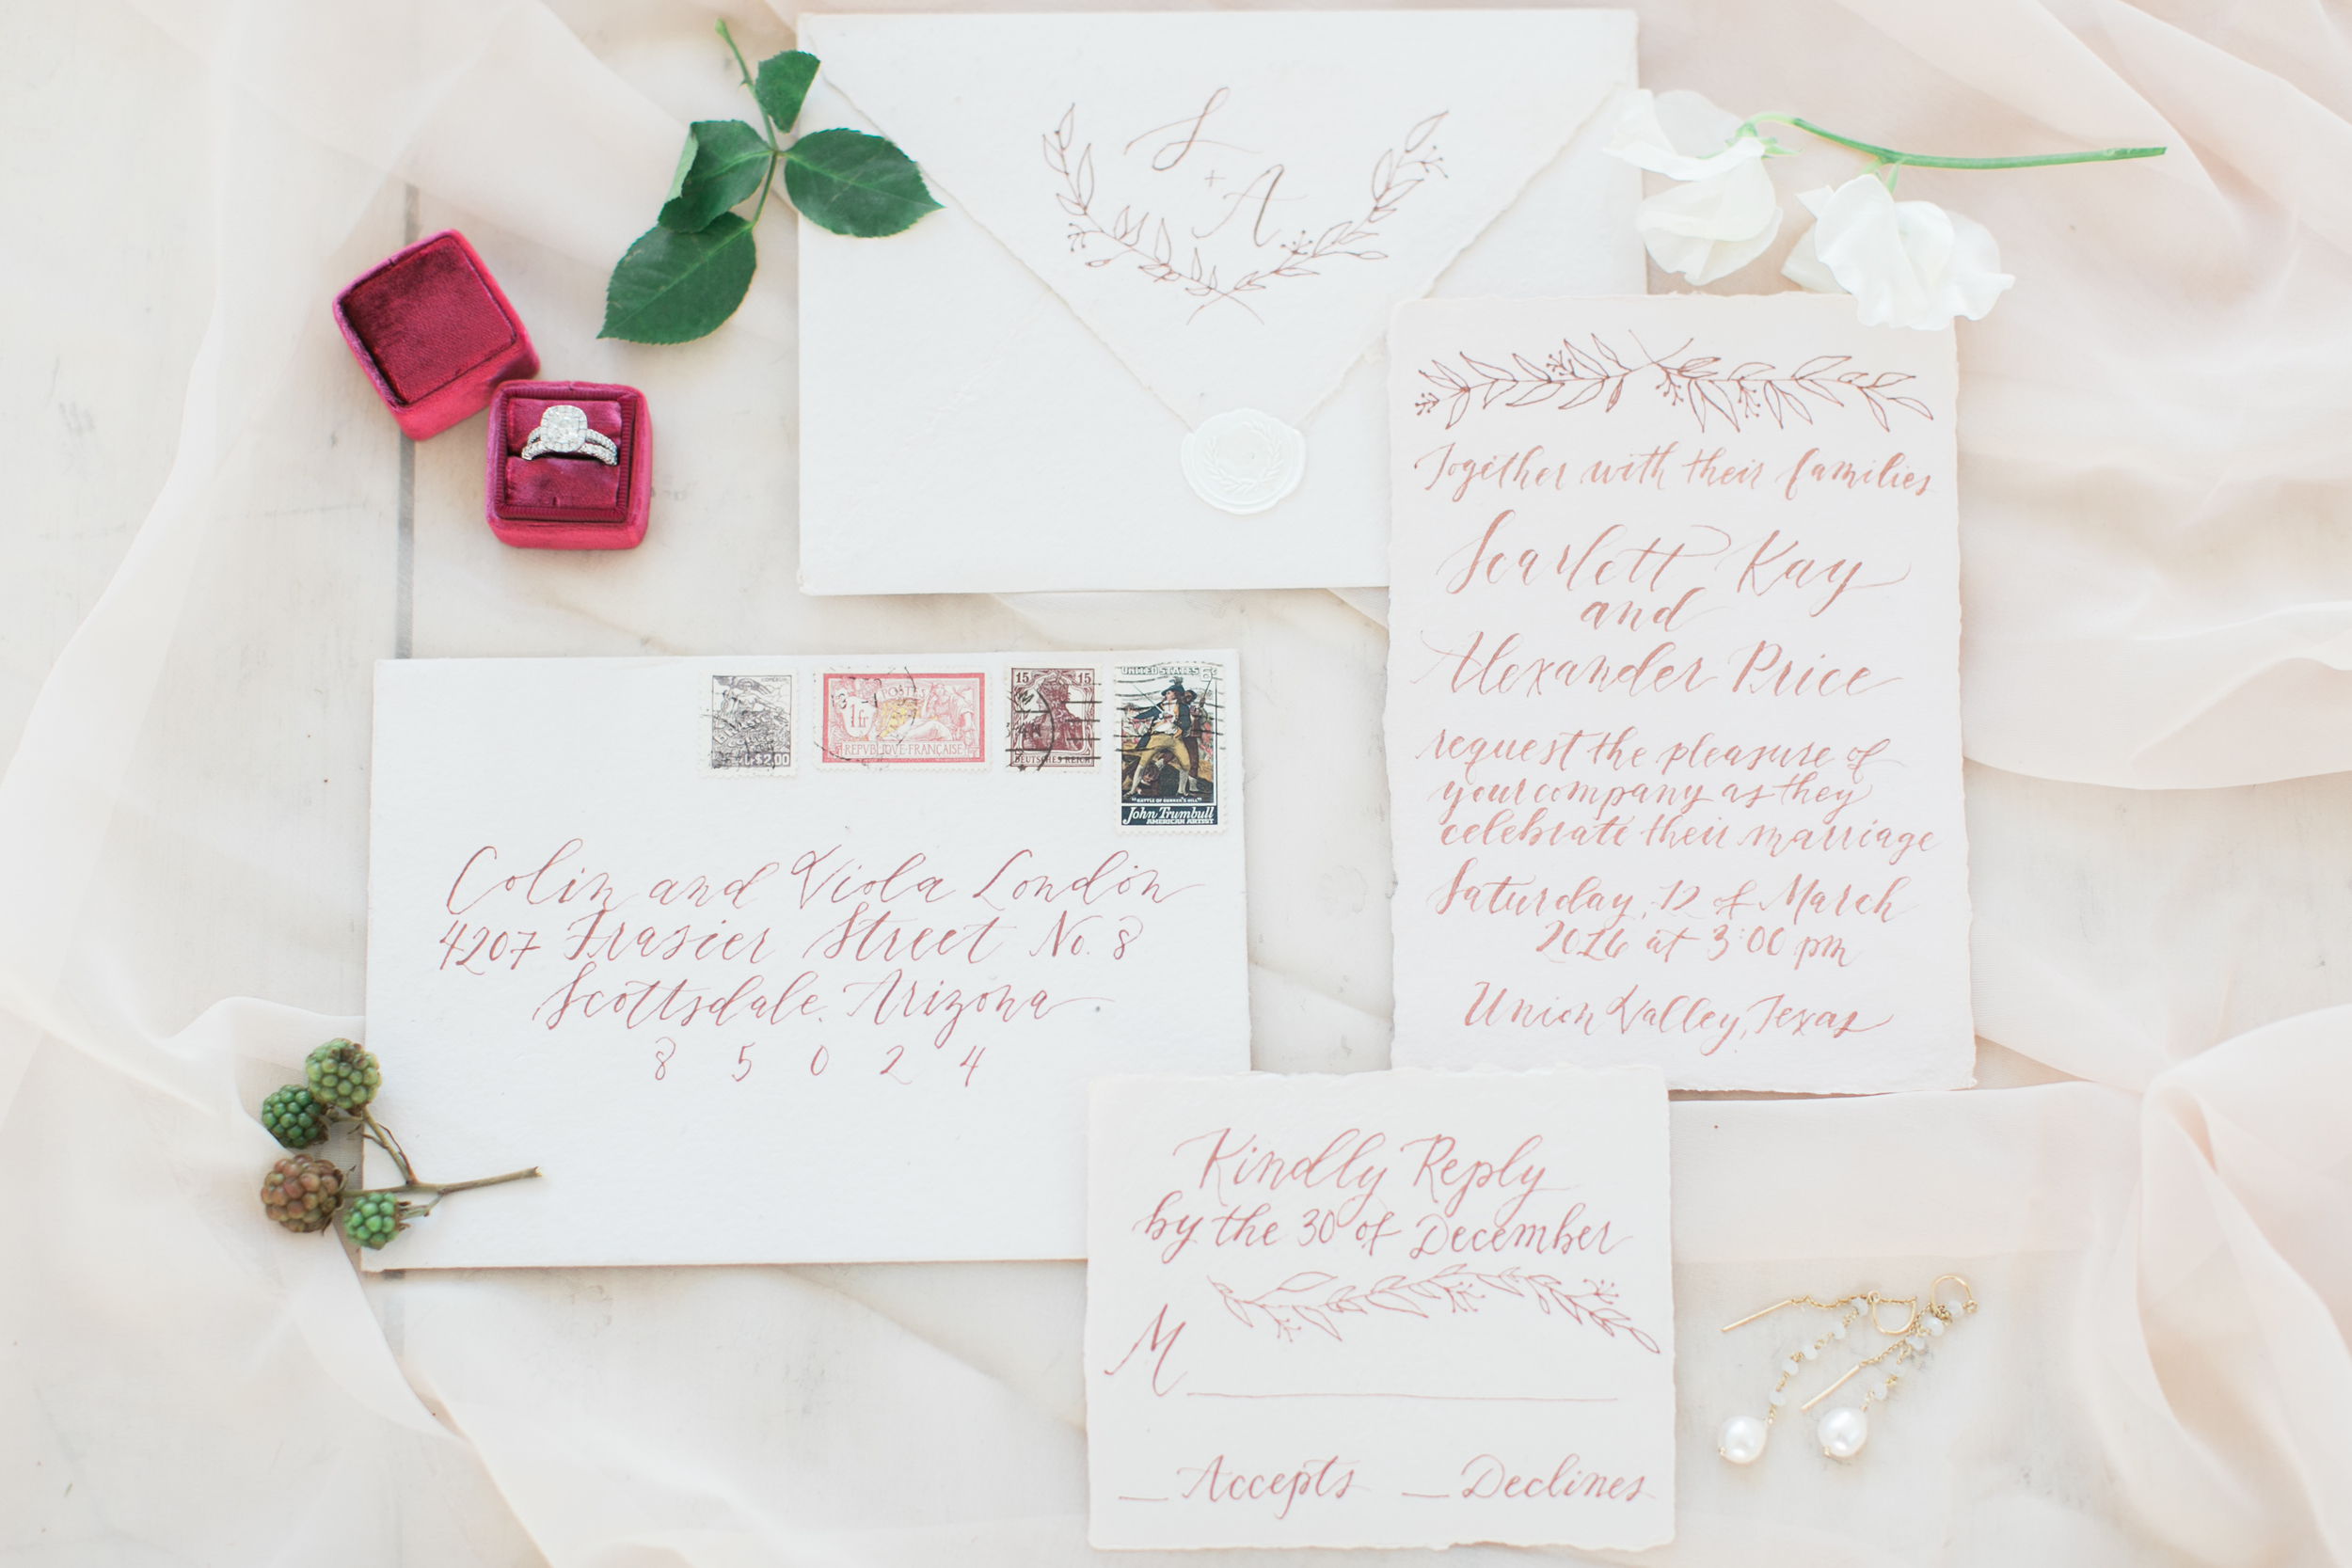 S
+
A
Together with their families
Scarlett Kay
and
Alexander Price
request the pleasure of
your company as they
celebrate their marriage
Saturday, 12 of March
2016 at 3:00 pm
Union Valley, Texas
$2.00
POSTE
1 fr
REPUBLIQUE FRANÇAISE
15 15
DEUTSCHES REICH
UNITED STATES 6c
"BATTLE OF BUNKER'S HILL"
John Trumbull
AMERICAN ARTIST
Colin and Viola London
4207 Frasier Street No. 8
Scottsdale, Arizona
8 5 0 2 4
Kindly Reply
by the 30 of December
M
Accepts Declines